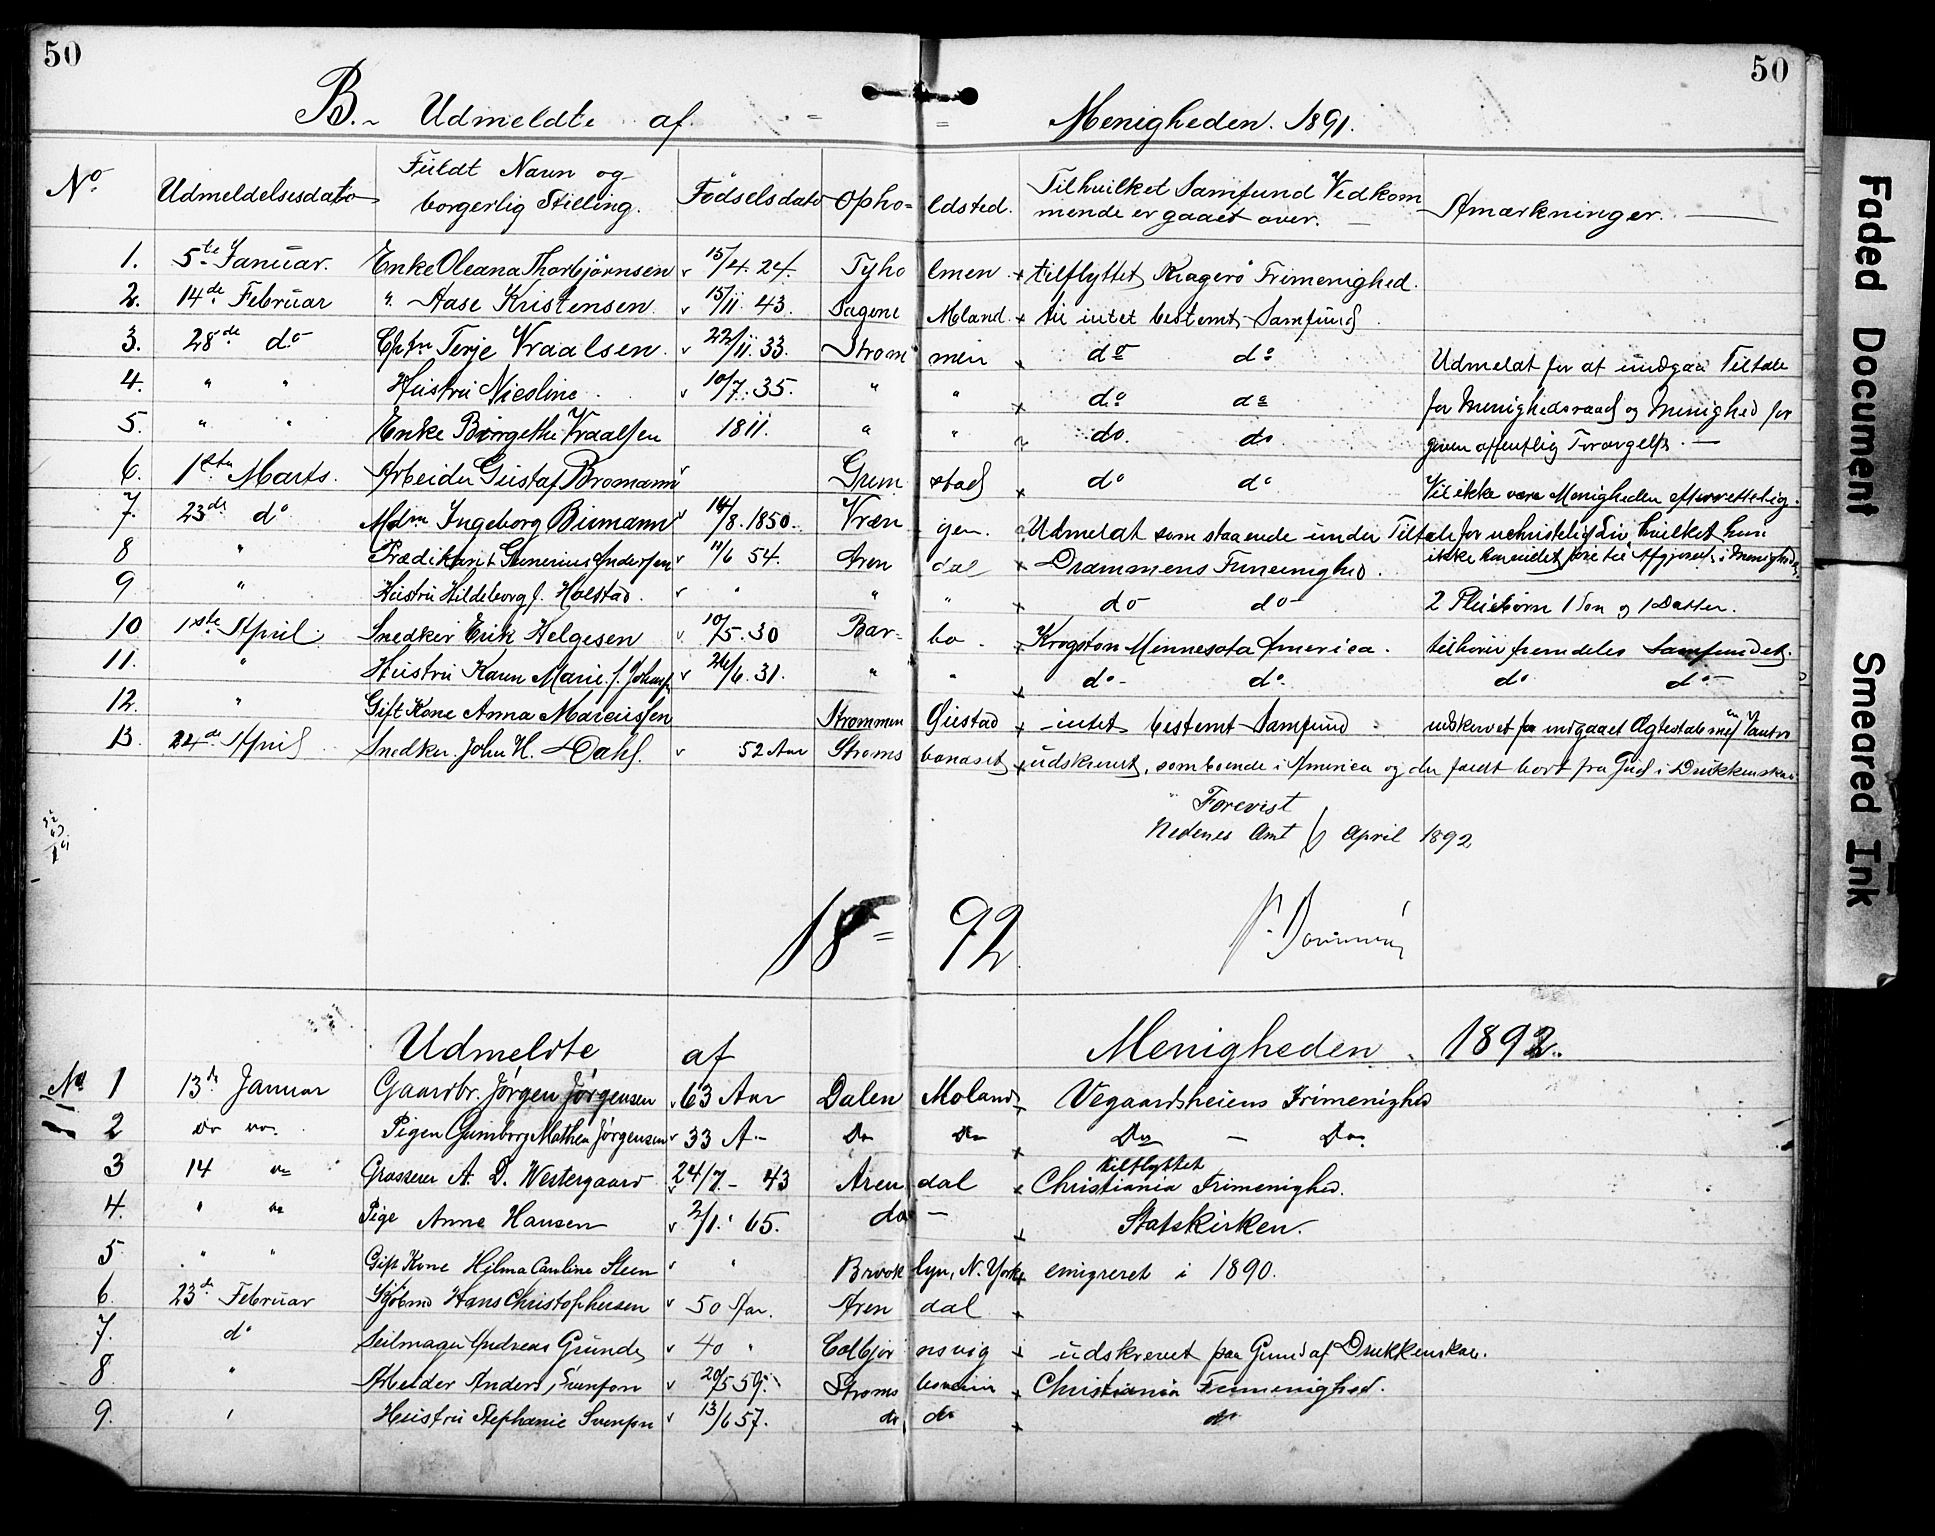 50 50
B. Udmeldte af Menigheden. 1891.
No. Udmeldelsesdato Fuldt Navn og borgerlig Stilling. Fødselsdato Opho= ldsted. Til hvilket Samfund Vedkom mende er gaaet over. Anmærkninger.
1. 5te Januar. Enke Oleana Thorbjørnsen 15/4. 24. Tyho lmen tilflyttet Kragerö Frimenighed.
2. 14de Februar " Aase Kristensen 15/11. 43. Sagene Moland. til intet bestemt Samfund
3. 28de do Cptn Terje Vraalsen. 22/11. 33. Strøm men do do Udmeldt for at undgaa Tiltale
4. " " Hustru Nicoline 10/7. 35. " " do do for Menighedsraad og Menighed for
5. " " Enke Börgethe Vraalsen 1811. " " do. do given offentlig Forargelse.
6. 1ste Marts. Arbeider Gustaf Bromann Grim stad do do Vil ikke være Menigheden efterrettelig.
7. 23de do Mdm Ingeborg Biemann 14/8. 1850. Vræn gen. Udmeldt som staaende under Tiltale for uchristelig Liv hvilket hun
8 " Prædikant Gunerius Andersen 11/6 54. Aren dal Drammens Frimenighed. ikke
9 " Hustru Hildeborg f. Holstad. " " " do do 2 Pleiebørn 1 Søn og 1 Datter.
10 1ste April. Snedker Erik Helgesen 10/5. 30 Bar- bo. Krogston Minnesota America. tilhører fremdeles Samfundet.
11. " Hustru Karen Marie f. Johans 26/6. 31. " " do do do do
12. " Gift Kone Anna Marcussen Strømmen Öiestad intet bestemt Samfund udskrevet for indgaaet Ægteskab med en Vantro
13. 24de April Snedker. John H. Dahl. 52 Aar Stroms bonæset udskrevet, som boende i America og der faldt bort fra Gud i Drukkenskab
Forevist
Nedenes Amt April 1892
18= 92
Udmeldte af Menigheden 1892.
No 1 13de Januar Gaardbr. Jørgen Jørgensen 63 Aar Dalen Moland Vegaardsheiens Frimenighed
2 do do. Pigen Gunborg Mathea Jørgensen 33 A. Do Do Do Do
3 14 do Grosserer A. D. Westergaard 24/7. 43 Aren dal tilflyttet Christiania Frimenighed.
4. " do Pige Anne Hansen 2/1. 65. do Statskirken.
5 " " Gift Kone Hilma Caroline Steen " Brook lyn, N. York emigreret i 1890.
6. 23de Februar Skjöbmd Hans Christophersen 50 Aar. Aren dal
7. do Seilmager Andreas Grunde 40 " Colbjor nsvig udskrevet paa Grund af Drukkenskab.
8 " Arbeider Anders Svenson 20/5 59. Stroms Christiania Frimenighed.
9. " Hustru Stephanie Svenson 13/6 57. do do do
Faded Document
Smeared Ink